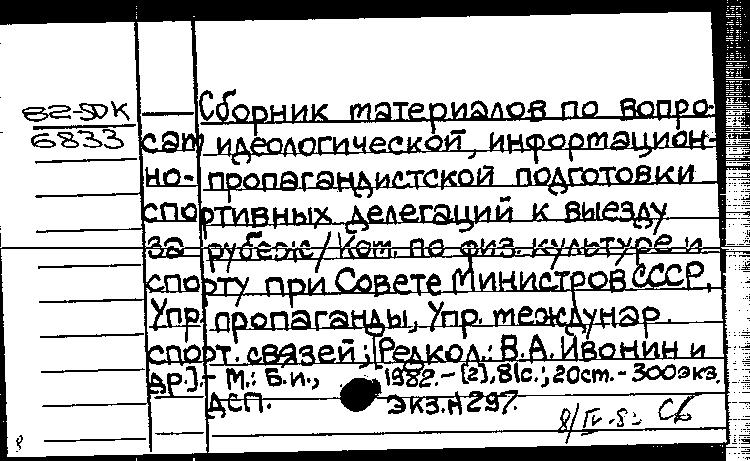 82-5ДК
6833
Сборник материалов по вопро-
сам идеологической, информацион-
но-пропагандистской подготовки
спортивных делегаций к выезду
за рубеж / Ком. по физ. культуре и
спорту при Совете Министров СССР,
Упр. пропаганды, Упр. междунар.
спорт. связей; [Редкол.: В.А. Ивонин и
др.]. - М.: Б.и., 1982. - [2], 81с.; 20см. - 300экз.
ДСП. ЭКЗ.N297.